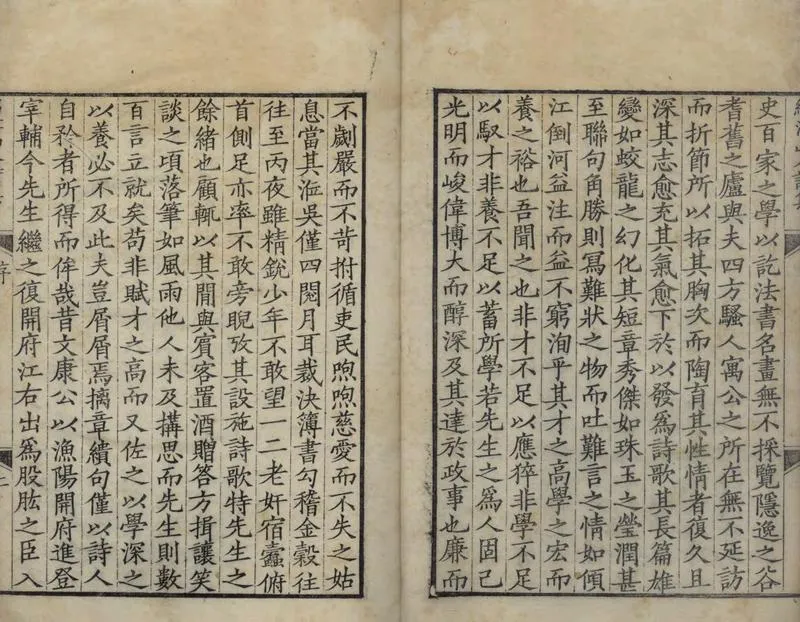 史百家之學以訖法書名畫無不採覽隱逸之谷
耆舊之廬與夫四方騷人寓公之所在無不延訪
而折節所以拓其胸次而陶育其性情者復久且
深其志愈充其氣愈下於以發爲詩歌其長篇雄
變如蛟龍之幻化其短章秀傑如珠玉之瑩潤甚
至聯句角勝則冩難狀之物而吐難言之情如傾
江倒河益注而益不窮洵乎其才之高學之宏而
養之裕也吾聞之也非才不足以應猝非學不足
以馭才非養不足以蓄所學若先生之爲人固已
光明而峻偉博大而醇深及其達於政事也廉而
不劌嚴而不苛拊循吏民煦煦慈愛而不失之姑
息當其涖吳僅四閱月耳裁決簿書勾稽金穀往
往至丙夜雖精銳少年不敢望一二老奸宿蠹俯
首側足亦率不敢旁睨攷其設施詩歌特先生之
餘緒也顧輒以其閒與賓客置酒贈答方揖讓笑
談之頃落筆如風雨他人未及搆思而先生則數
百言立就矣苟非賦才之高而又佐之以學深之
以養必不及此夫豈屑屑焉摛章繢句僅以詩人
自矜者所得而侔哉昔文康公以漁陽開府進登
宰輔今先生繼之復開府江右出爲股肱之臣入
序